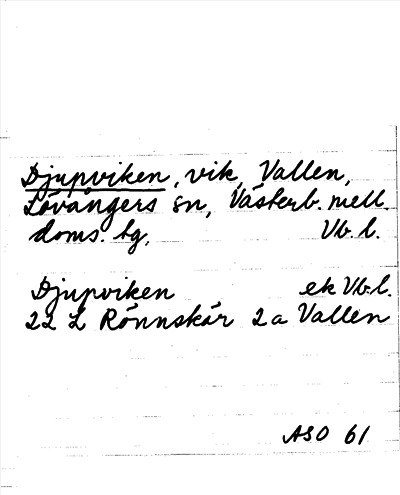 Djupviken, vik, Vallen,
Lövångers sn, Västerb. mell.
doms. tg, Vb. l.
Djupviken ek Vb. l.
22 L Rönnskär 2a Vallen
ASO 61